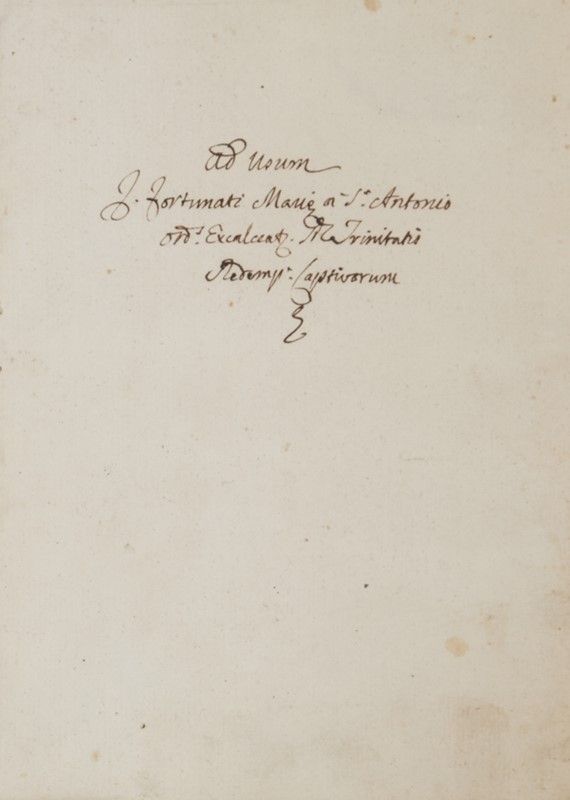 Ad Usum
F. Fortunati Marię a S.to Antonio
Ord.s Excalceat. Trinitatis
Redemp.s Captivorum